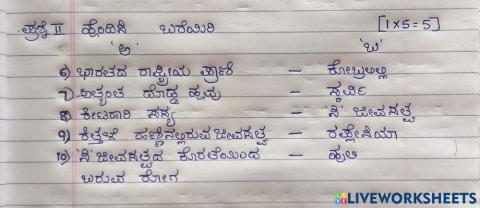 ಪ್ರಶ್ನೆ II ಹೊಂದಿಸಿ ಬರೆಯಿರಿ [1×5=5]
'ಅ' 'ಬ'
೬) ಭಾರತದ ರಾಷ್ಟ್ರೀಯ ಪ್ರಾಣಿ – ಕೋಬ್ರಾಲಿಲ್ಲಿ
೭) ಅತ್ಯಂತ ದೊಡ್ಡ ಹೂವು – ಸ್ಕರ್ವಿ
೮) ಕೀಟಾಹಾರಿ ಸಸ್ಯ – 'ಸಿ' ಜೀವಸತ್ವ
೯) ಕಿತ್ತಳೆ ಹಣ್ಣಿನಲ್ಲಿರುವ ಜೀವಸತ್ವ – ರಫ್ಲೇಸಿಯಾ
೧೦) 'ಸಿ' ಜೀವಸತ್ವದ ಕೊರತೆಯಿಂದ – ಹುಲಿ
ಬರುವ ರೋಗ
LIVEWORKSHEETS